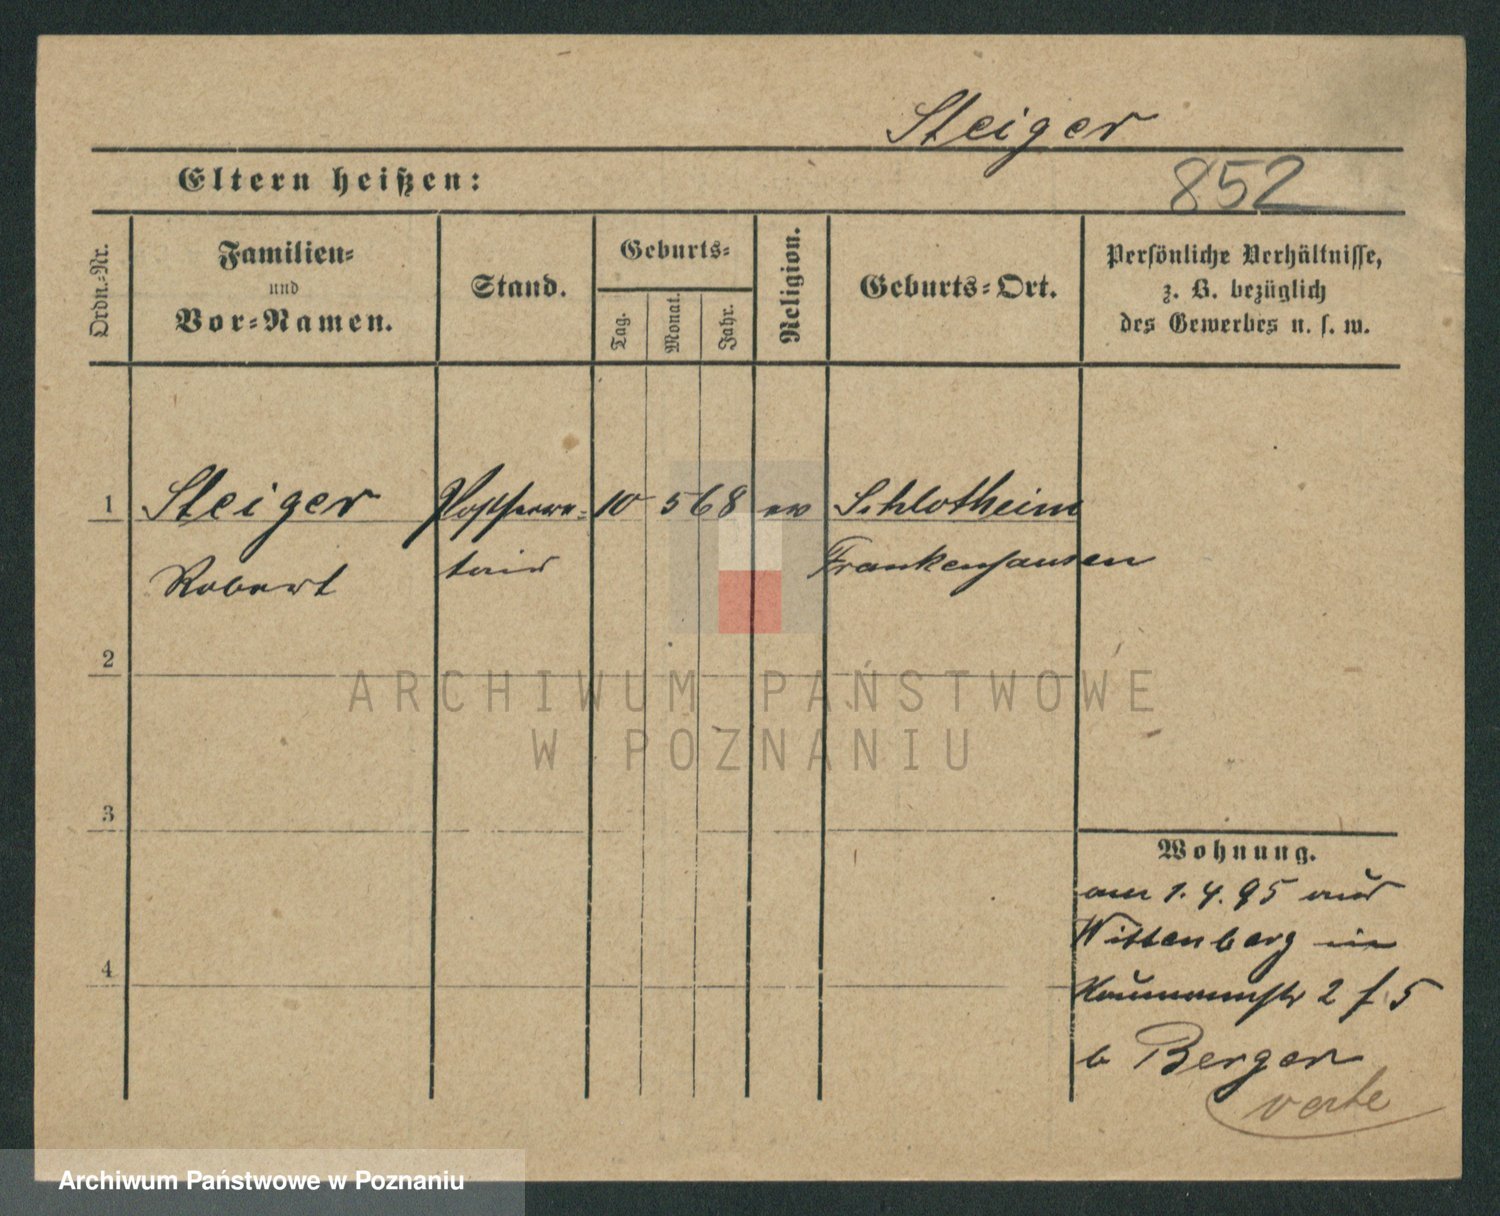 Steiger
Eltern heißen:
852
Ordn.-Nr.
Familien-
und
Vor-Namen.
Stand.
Geburts-
Tag.
Monat.
Jahr.
Religion.
Geburts-Ort.
Persönliche Verhältnisse,
z. B. bezüglich
des Gewerbes u. s. w.
1 Steiger Postsecre- 10 5 68 ev Schlotheim
Robert tair Frankenhausen
2
ARCHIWUM PAŃSTWOWE
W POZNANIU
3
Wohnung.
am 1. 4. 95 aus
Wittenberg in
Naumannstr 2 f. 5
b Berger
verte
4
Archiwum Państwowe w Poznaniu